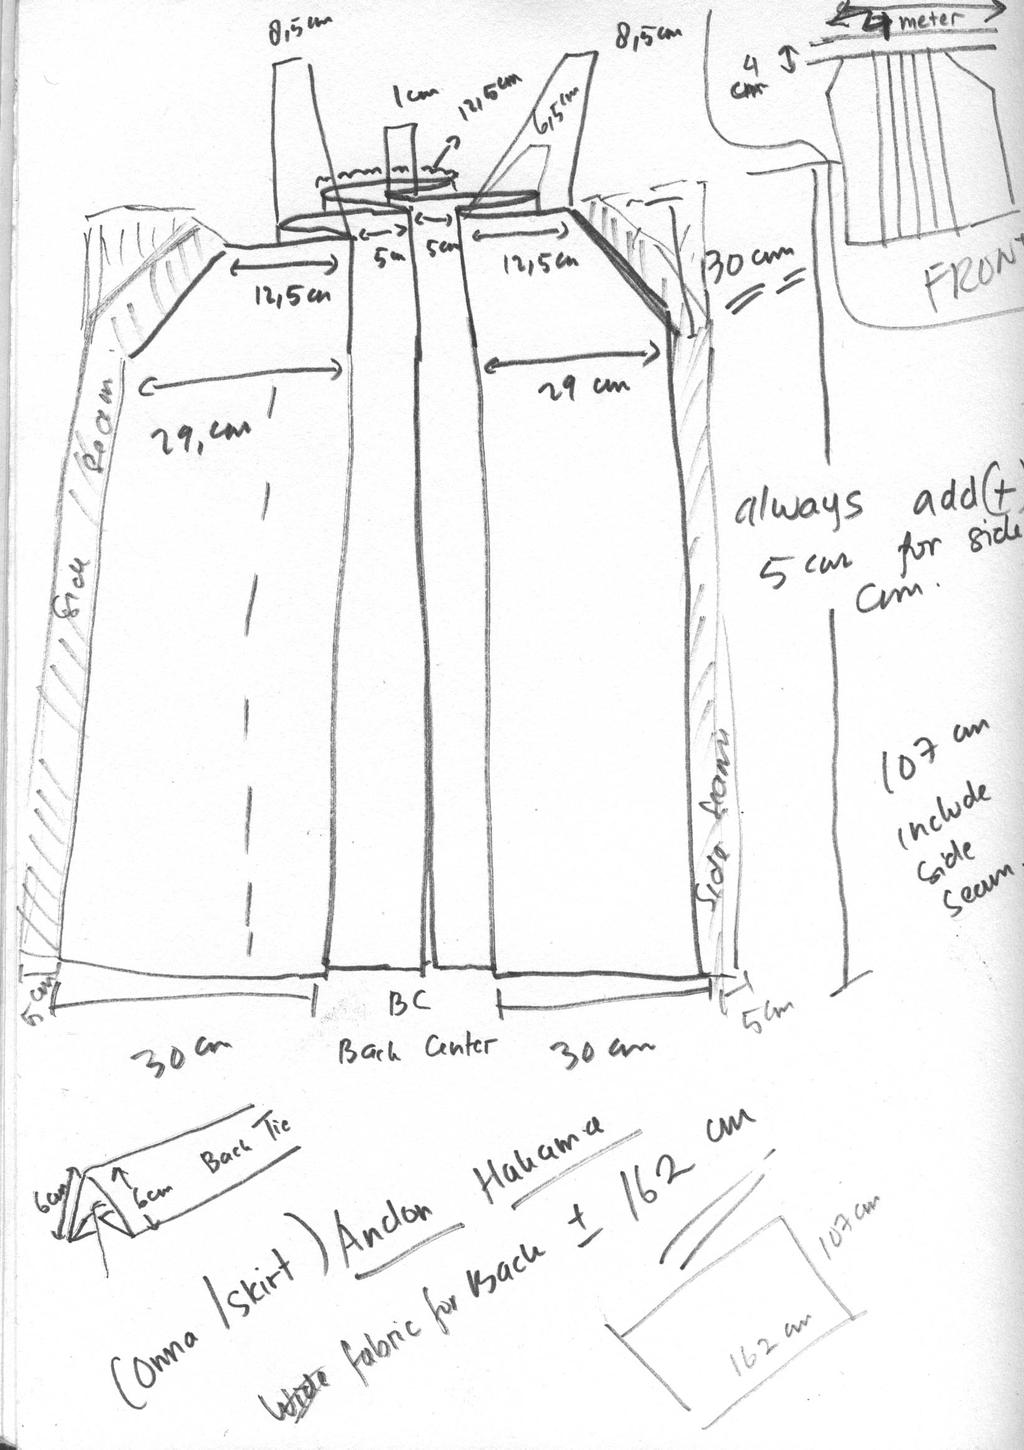 8,5 cm
8,5 cm
4 meter
4
cm
1 cm
12,5 cm
6,5 cm
5 cm
5 cm
12,5 cm
12,5 cm
30 cm
FRONT
29, cm
29 cm
Side Seam
always add (+)
5 cm for side
cm.
107 cm
include
side
seam.
Side Seam
5 cm
5 cm
BC
30 cm
Back Center
30 cm
Back Tie
6 cm
6 cm
(Onna / skirt) Andon Hakama
Wide fabric for Back ± 162 cm
107 cm
162 cm